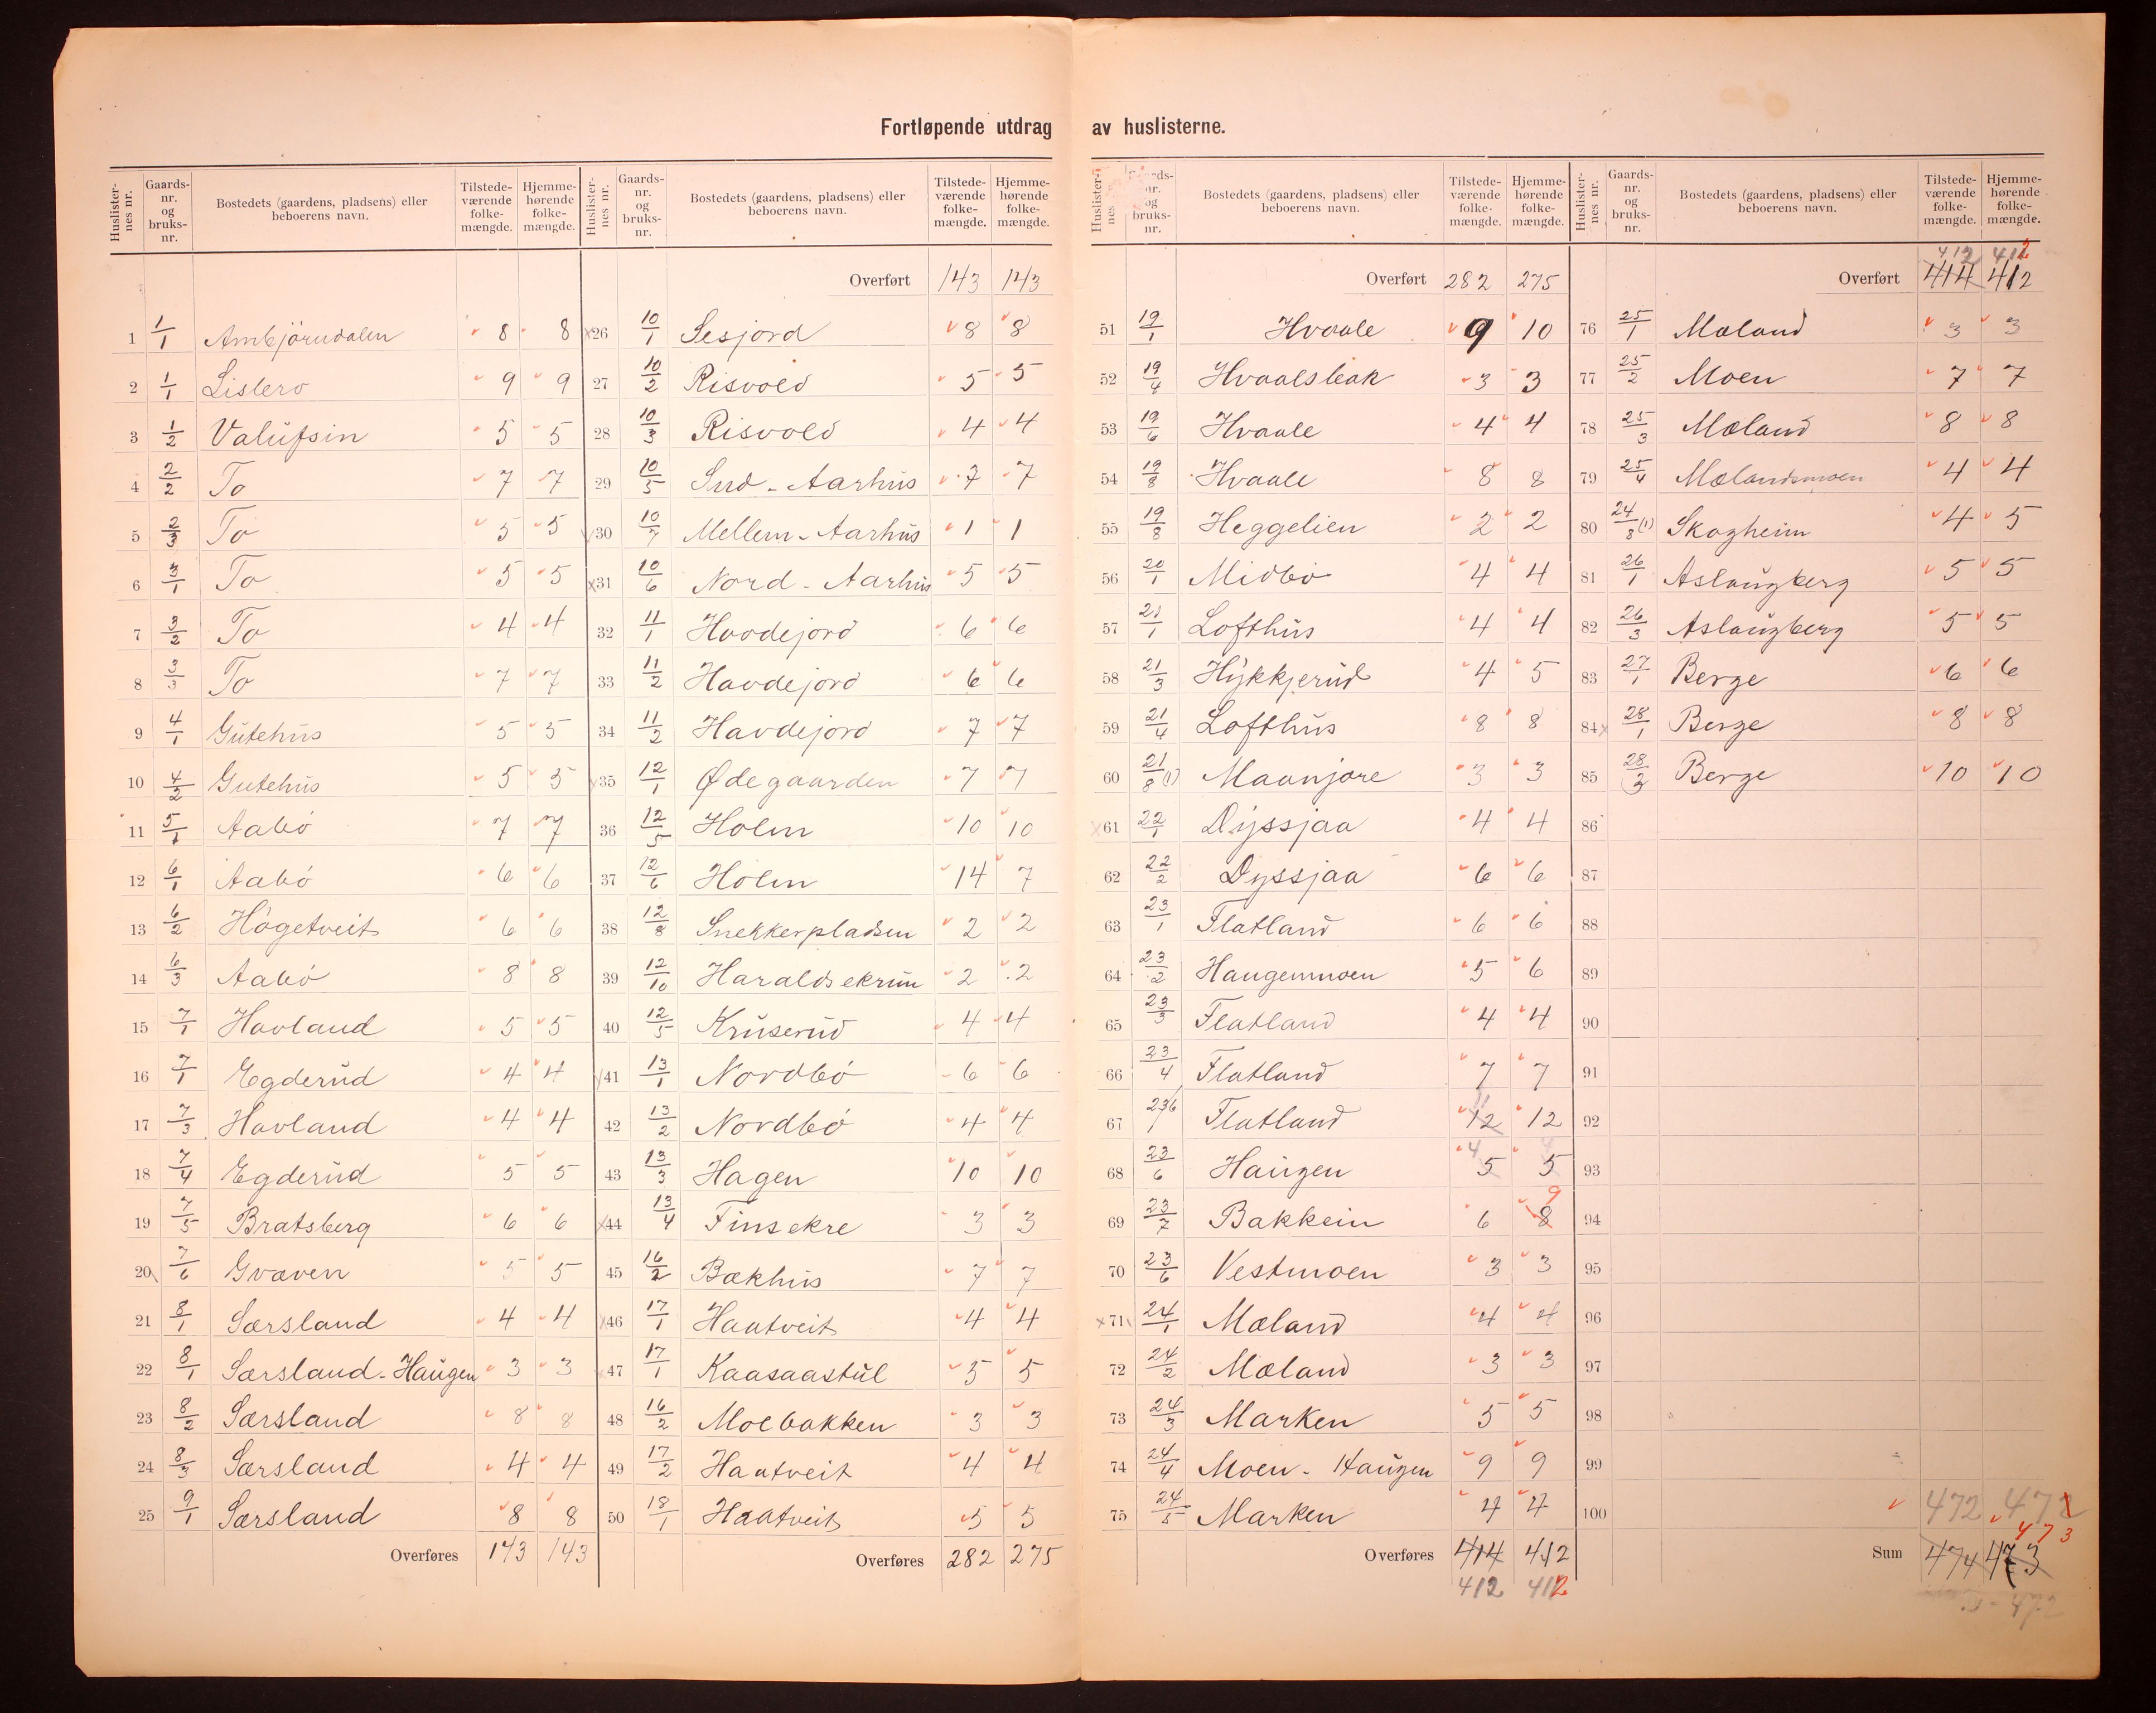 Fortløpende utdrag av huslisterne.
Huslister-nes nr. Gaards-nr. og bruks-nr. Bostedets (gaardens, pladsens) eller beboerens navn. Tilstede-værende folke-mængde. Hjemme-hørende folke-mængde.
1 1/1 Ambjörndalen 8 8
2 1/1 Listero 9 9
3 1/2 Valufsin 5 5
4 2/2 To 7 7
5 2/3 To 5 5
6 3/1 To 5 5
7 3/2 To 4 4
8 3/3 To 7 7
9 4/1 Gutehus 5 5
10 4/2 Gutehus 5 5
11 5/1 Aabö 7 7
12 6/1 Aabö 6 6
13 6/2 Högetveit 6 6
14 6/3 Aabö 8 8
15 7/1 Havland 5 5
16 7/1 Egderud 4 4
17 7/3 Havland 4 4
18 7/4 Egderud 5 5
19 7/5 Bratsberg 6 6
20 7/6 Gvaven 5 5
21 8/1 Særsland 4 4
22 8/1 Særsland-Haugen 3 3
23 8/2 Særsland 8 8
24 8/3 Særsland 4 4
25 9/1 Særsland 8 8
Overføres 143 143
Huslister-nes nr. Gaards-nr. og bruks-nr. Bostedets (gaardens, pladsens) eller beboerens navn. Tilstede-værende folke-mængde. Hjemme-hørende folke-mængde.
Overført 143 143
x26 10/1 Sesjord 8 8
27 10/2 Risvold 5 5
28 10/3 Risvold 4 4
29 10/5 Sud-Aarhus 7 7
30 10/7 Mellem-Aarhus 1 1
x31 10/6 Nord-Aarhus 5 5
32 11/1 Havdejord 6 6
33 11/2 Havdejord 6 6
34 11/2 Havdejord 7 7
35 12/1 Ødegaarden 7 7
36 12/5 Holm 10 10
37 12/6 Holm 14 7
38 12/8 Snekkerpladsen 2 2
39 12/10 Haraldsekrun 2 2
40 12/5 Kruserud 4 4
41 13/1 Nordbö 6 6
42 13/2 Nordbö 4 4
43 13/3 Hagen 10 10
x44 13/4 Finsekre 3 3
45 16/2 Bækhus 7 7
x46 17/1 Haatveit 4 4
47 17/1 Kaasaastul 5 5
48 16/2 Moebakken 3 3
49 17/2 Haatveit 4 4
50 18/1 Haatveit 5 5
Overføres 282 275
Huslister-nes Gaards-nr. og bruks-nr. Bostedets (gaardens, pladsens) eller beboerens navn. Tilstede-værende folke-mængde. Hjemme-hørende folke-mængde.
Overført 282 275
51 19/1 Hvaale 9 10
52 19/4 Hvaalsleak 3 3
53 19/6 Hvaale 4 4
54 19/8 Hvaale 8 8
55 19/8 Heggelien 2 2
56 20/1 Midbö 4 4
57 21/1 Lofthus 4 4
58 21/3 Hykkjerud 4 5
59 21/4 Lofthus 8 8
60 21/8 (1) Maanjore 3 3
x61 22/1 Dyssjaa 4 4
62 22/2 Dyssjaa 6 6
63 23/1 Flatland 6 6
64 23/2 Haugenmoen 5 6
65 23/3 Flatland 4 4
66 23/4 Flatland 7 7
67 Flatland 12 11 12
68 23/6 Haugen 4 5 5
69 23/7 Bakkein 6 8 9
70 23/6 Vestmoen 3 3
x71 24/1 Mæland 4 4
72 24/2 Mæland 3 3
73 24/3 Marken 5 5
74 24/4 Moen-Haugen 9 9
75 24/5 Marken 4 4
Overføres 414 412
412 412
Huslister-nes nr. Gaards-nr. og bruks-nr. Bostedets (gaardens, pladsens) eller beboerens navn. Tilstede-værende folke-mængde. Hjemme-hørende folke-mængde.
412 412
Overført 414 412
76 25/1 Mæland 3 3
77 25/2 Moen 7 7
78 25/3 Mæland 8 8
79 25/4 Mælandsmoen 4 4
80 24/8 (1) Skogheim 4 5
81 26/1 Aslaugberg 5 5
82 26/3 Aslaugberg 5 5
83 27/1 Berge 6 6
84x 28/1 Berge 8 8
85 28/3 Berge 10 10
86
87
88
89
90
91
92
93
94
95
96
97
98
99
100 472 472
473
Sum 474 473
472